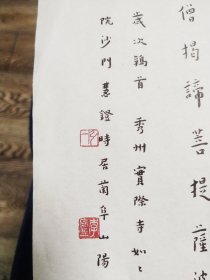 僧揭諦菩提薩婆
歲次鶉首 秀州實際寺如々
院沙門慧鐙時居蘭阜山陽